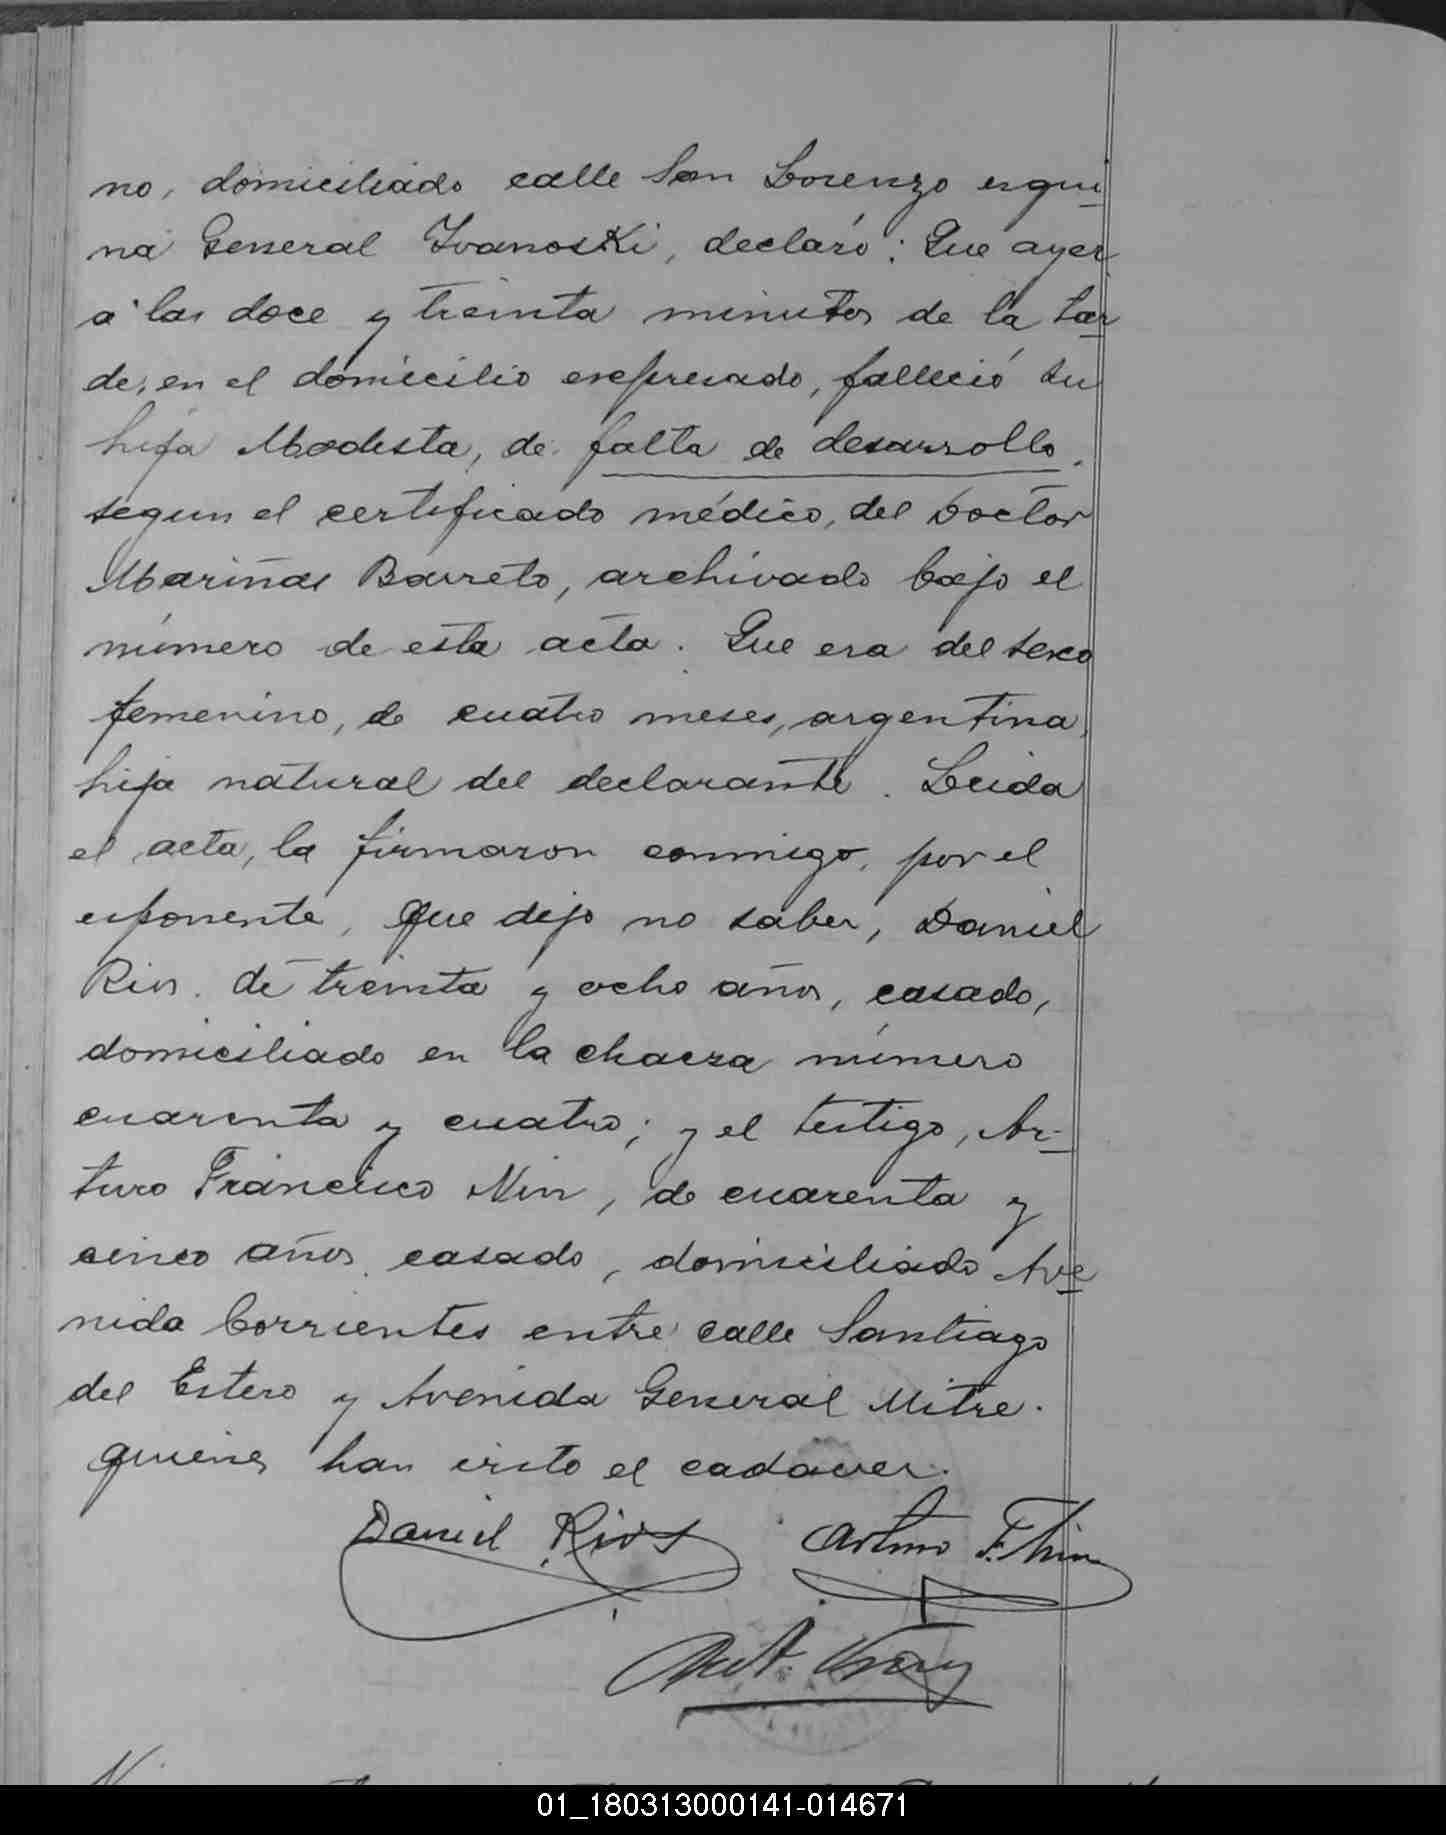 no, domiciliado calle San Lorenzo esqui
na General Ivanoski, declaró: Que ayer
á las doce y treinta minutos de la tar
de, en el domicilio expresado, falleció su
hija Modesta, de falta de desarrollo,
segun el certificado médico, del Doctor
Mariñas Barreto, archivado bajo el
número de esta acta. Que era del sexo
femenino, de cuatro meses, argentina,
hija natural del declarante. Leida
el acta, la firmaron conmigo, por el
esponente, que dijo no saber, Daniel
Rios, de treinta y ocho años, casado,
domiciliado en la chacra número
cuarenta y cuatro; y el testigo, Ar-
turo Francisco Nin, de cuarenta y
cinco años, casado, domiciliado Ave
nida Corrientes entre calle Santiago
del Estero y Avenida General Mitre.
quienes han visto el cadaver.
Daniel Rios Arturo F. Nin
01_180313000141-014671